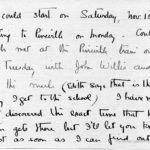 could start on Saturday, Nov 18
ing to Purcville on Monday. Coul
me met at the Purcville train on
Tuesday, with John Willis and
the mail. (Edith says that is the
I get to the school) I have n
discovered the exact time that t
gets there but I'll let you kn
st as soon as I can find out